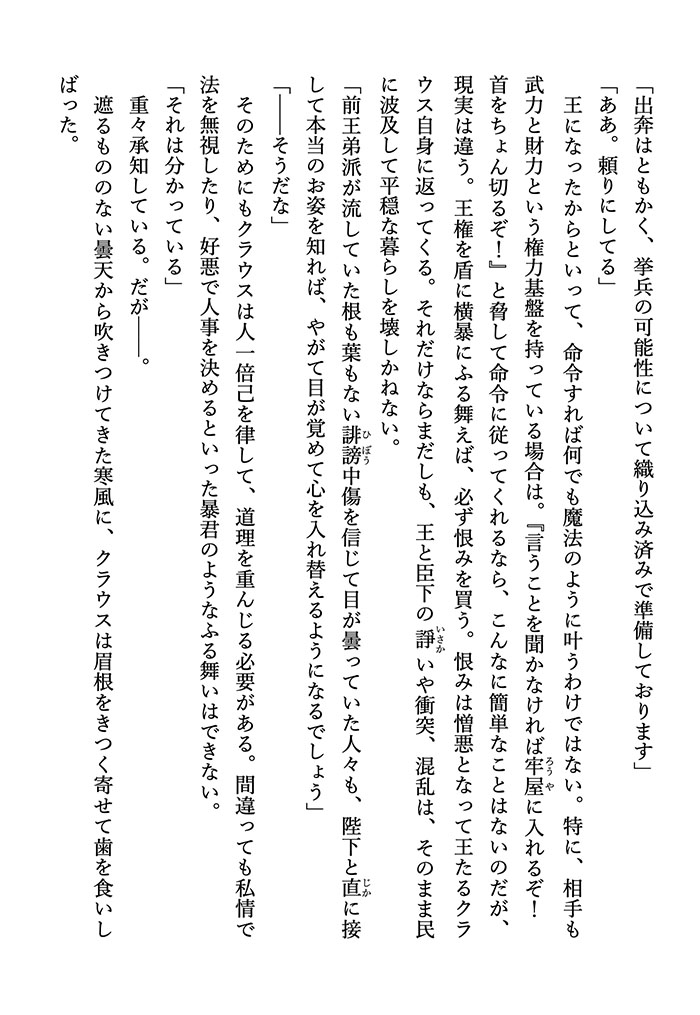 「出奔はともかく、挙兵の可能性について織り込み済みで準備しております」
「ああ。頼りにしてる」
　王になったからといって、命令すれば何でも魔法のように叶うわけではない。特に、相手も
武力と財力という権力基盤を持っている場合は。『言うことを聞かなければ牢屋に入れるぞ！
首をちょん切るぞ！』と脅して命令に従ってくれるなら、こんなに簡単なことはないのだが、
現実は違う。王権を盾に横暴にふる舞えば、必ず恨みを買う。恨みは憎悪となって王たるクラ
ウス自身に返ってくる。それだけならまだしも、王と臣下の諍いや衝突、混乱は、そのまま民
に波及して平穏な暮らしを壊しかねない。
「前王弟派が流していた根も葉もない誹謗中傷を信じて目が曇っていた人々も、陛下と直に接
して本当のお姿を知れば、やがて目が覚めて心を入れ替えるようになるでしょう」
「――そうだな」
　そのためにもクラウスは人一倍己を律して、道理を重んじる必要がある。間違っても私情で
法を無視したり、好悪で人事を決めるといった暴君のようなふる舞いはできない。
「それは分かっている」
　重々承知している。だが――。
　遮るもののない曇天から吹きつけてきた寒風に、クラウスは眉根をきつく寄せて歯を食いし
ばった。